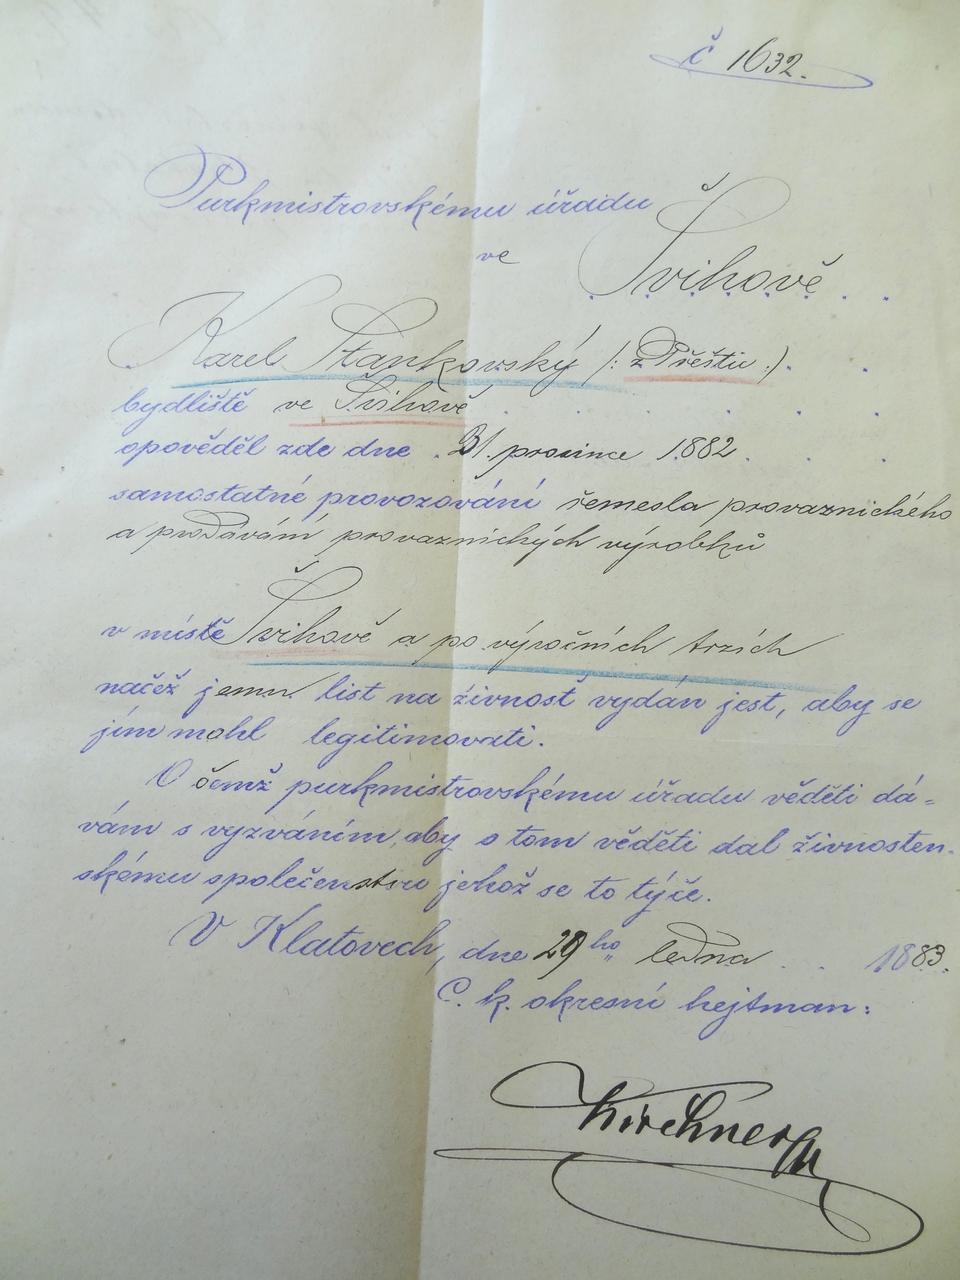 č 1632.
Purkmistrovskému úřadu
ve Švihově
Karel Stankovský (: z Přeštic :)
bydliště ve Švihově
opověděl zde dne 31. prosince 1882
samostatné provozování řemesla provaznického
a prodávání provaznických výrobků
v místě Švihově a po výročních trzích
načež jemu list na živnost vydán jest, aby se
jím mohl legitimovati.
O čemž purkmistrovskému úřadu věděti dá-
vám s vyzváním, aby o tom věděti dal živnosten-
skému společenstvu jehož se to týče.
V Klatovech, dne 29ho ledna 1883.
C. k. okresní hejtman:
Kirchner